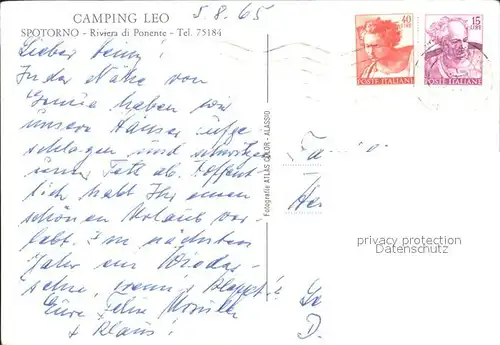 CAMPING LEO
SPOTORNO - Riviera di Ponente - Tel. 75184
5.8.65
40 LIRE
POSTE ITALIANE
15 LIRE
POSTE ITALIANE
Lieber
In der Nähe von
Genua haben wir
unsere Häuser aufge
schlagen und schwitzen
unser Fett ab. Hoffent
lich habt Ihr einen
schönen Urlaub ver
lebt. Im nächsten
Jahr ein Wieder
sehn, wenn's klappt!
Eure
+ Klaus!
Fotografie ATLAS COLOR - ALASSIO
Fa
D.
privacy protection
Datenschutz